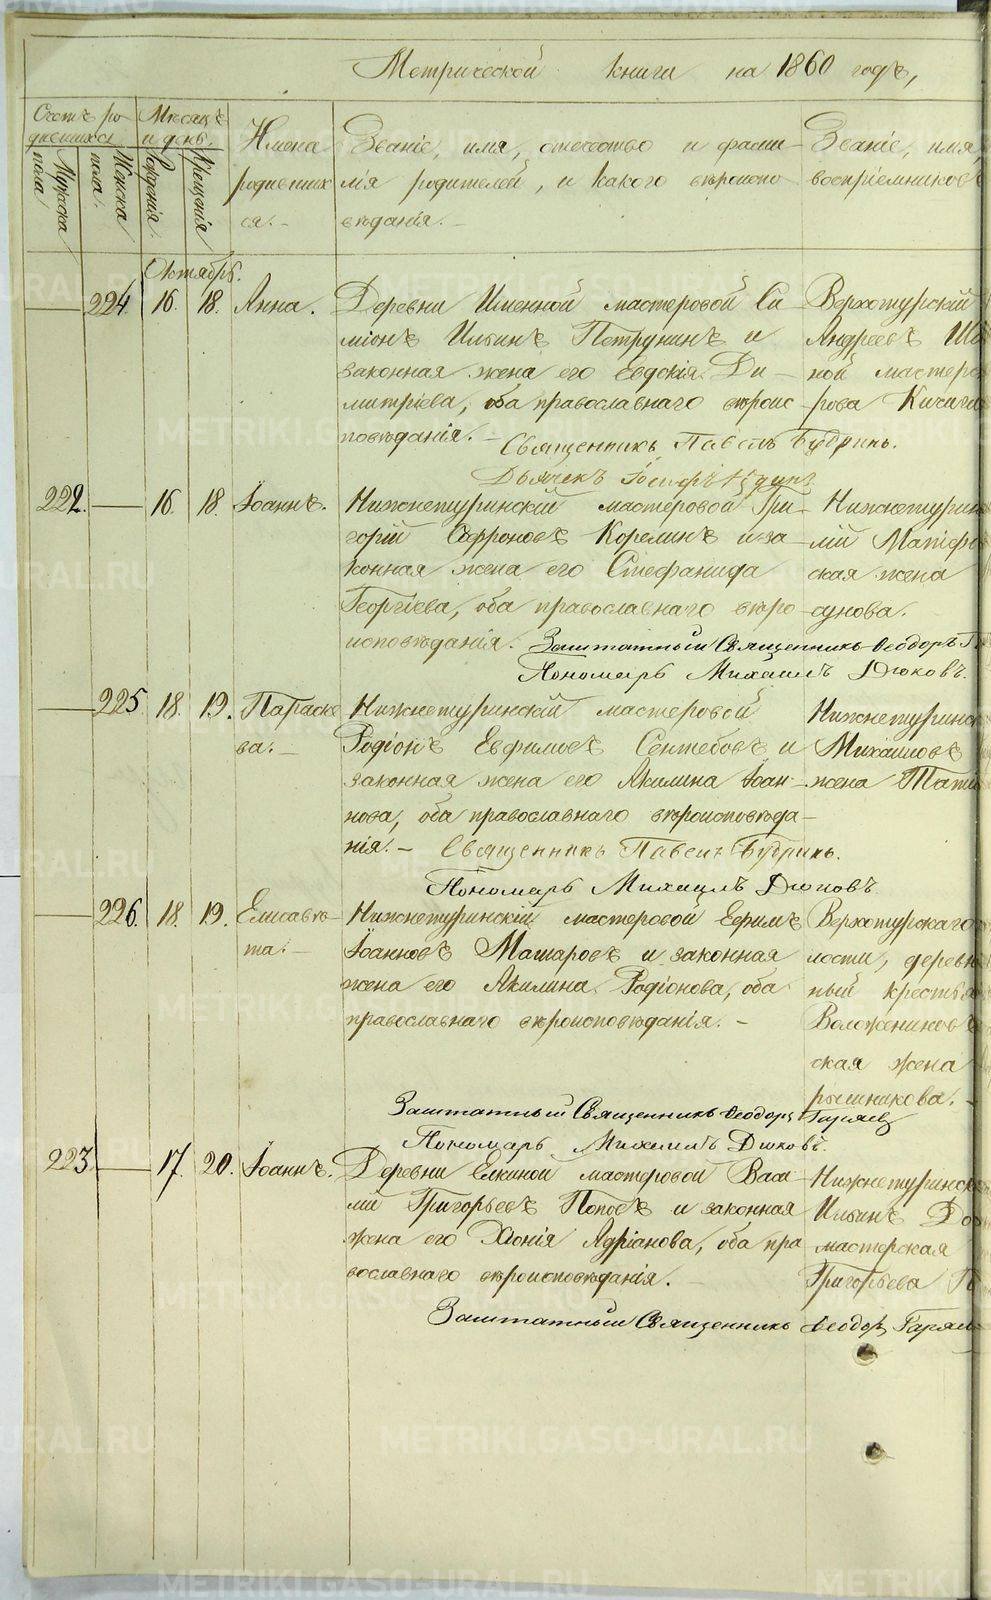 Метрической книги на 1860 годъ,
Счетъ ро-
дившихся.
Мужска
пола.
Женска
пола.
Месяцъ
и день.
Рожденія.
Крещенія.
Имена
родивших
ся. -
Званіе, имя, отчество и фами-
лія родителей, и какого вѣроиспо-
вѣданія. -
Званіе, имя,
воспріемниковъ
Октябрь.
224. 16. 18. Анна.
Деревни Именной мастеровой Си-
міонъ Ильинъ Петрунинъ и
законная жена его Евдокія Ди-
митріева, оба православнаго вѣроис-
повѣданія. -
Священникъ Павелъ Будринъ.
Дьячекъ Іосифъ
Верхотурскій
Андреевъ
ной мастеро
рова Кичиги
222. 16. 18. Іоаннъ.
Нижнетуринскій мастеровой Гри-
горій Софроновъ Корелинъ и за-
конная жена его Стефанида
Георгіева, оба православнаго вѣро-
исповѣданія.
Заштатный Священникъ Ѳеодоръ
Пономарь Михаилъ Дюковъ.
Нижнетурин
лій
ская жена
сунова.
225. 18. 19. Параске
ва. -
Нижнетуринскій мастеровой
Родіонъ Евфимовъ Сентебовъ и
законная жена его Акилина Іоан-
нова, оба православнаго вѣроисповѣда-
нія. -
Священникъ Павелъ Будринъ.
Пономарь Михаилъ Дюковъ
Нижнетуринс
Михаиловъ
жена Татія
226. 18. 19. Елисаве-
та. -
Нижнетуринскій мастеровой Ефимъ
Іоанновъ Машаровъ и законная
жена его Акилина Родіонова, оба
православнаго вѣроисповѣданія. -
Заштатный Священникъ Ѳеодоръ Гаряев
Пономарь Михаилъ Дюковъ.
Верхотурскаго
лости, деревн
ный крестья
Воложениновъ
ская жена
рышникова. -
223. 17. 20. Іоаннъ.
Деревни Елкиной мастеровой Васи-
лій Григорьевъ Поповъ и законная
жена его Хіонія Адріанова, оба пра
вославнаго вѣроисповѣданія. -
Заштатный Священникъ Ѳеодоръ Гаряев
Нижнетуринск
Ильинъ
мастерская
Григорьева П
METRIKI.GASO-URAL.RU